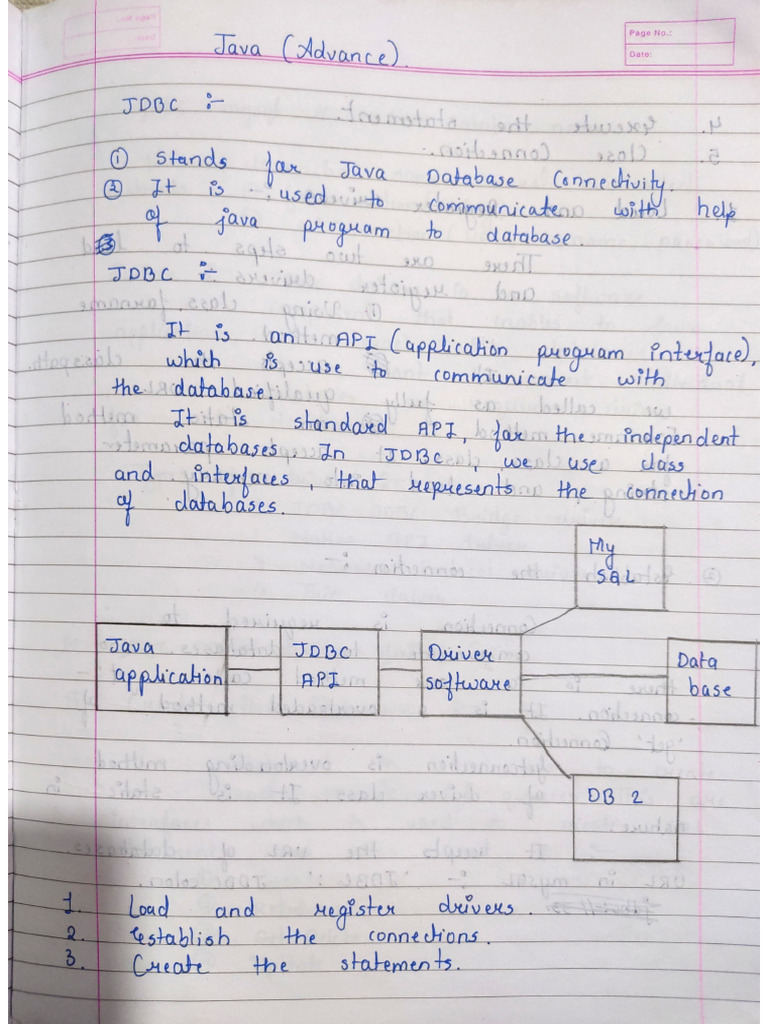 Page No.:
Date:
Java (Advance).
JDBC :-
① Stands for Java Database Connectivity.
② It is used to communicate with help
of java program to database.
JDBC :-
It is an API (application program interface),
which is use to communicate with
the database.
It is standard API, for the independent
databases. In JDBC, we use class
and interfaces, that represents the connection
of databases.
My
SQL
Java
application
JDBC
API
Driver
software
Data
base
DB 2
1. Load and register drivers.
2. Establish the connections.
3. Create the statements.